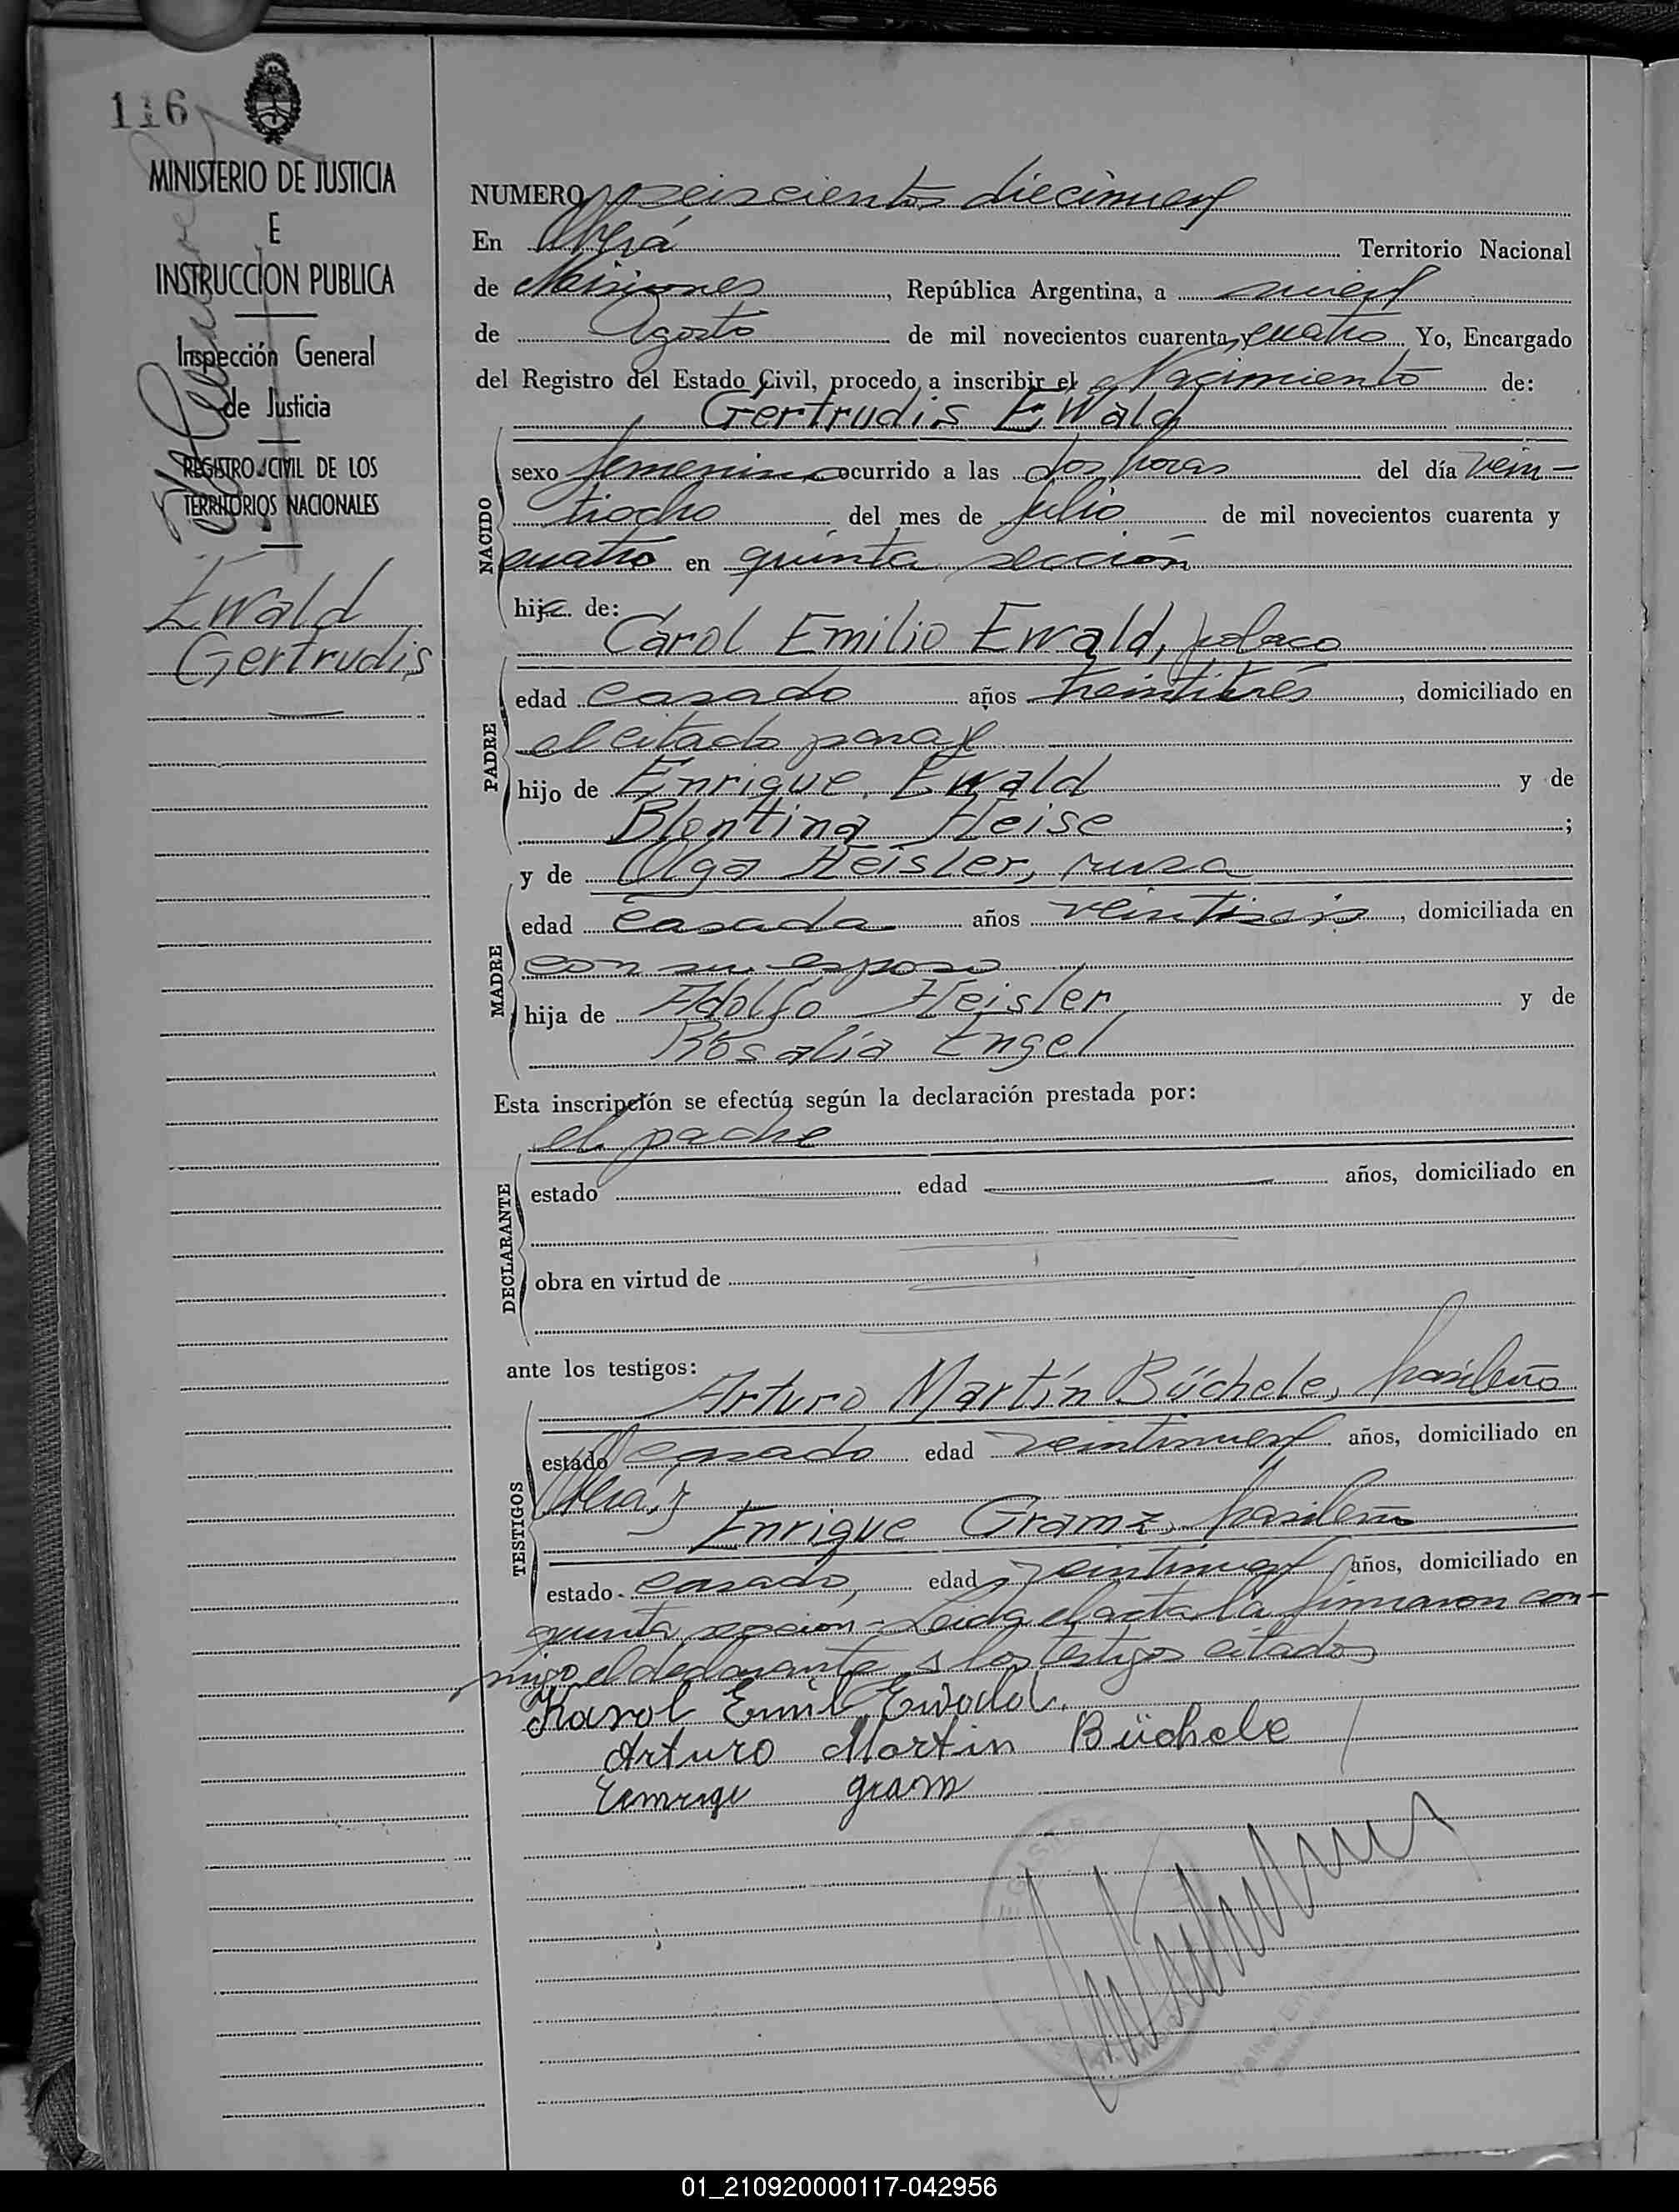 116
MINISTERIO DE JUSTICIA
E
INSTRUCCION PUBLICA
Inspección General
de Justicia
REGISTRO CIVIL DE LOS
TERRITORIOS NACIONALES
Ewald
Gertrudis
NUMERO seiscientos diecinueve
En Oberá Territorio Nacional
de Misiones, República Argentina, a nueve
de Agosto de mil novecientos cuarenta y cuatro Yo, Encargado
del Registro del Estado Civil, procedo a inscribir el Nacimiento de:
Gertrudis EWald
NACIDO
sexo femenino ocurrido a las dos horas del día vein-
tiocho del mes de julio de mil novecientos cuarenta y
cuatro en quinta sección
hija de:
Carol Emilio Ewald, polaco
PADRE
edad casado años treintitrés, domiciliado en
el citado paraje
hijo de Enrique Ewald y de
Blontina Heise;
y de Olga Heisler, rusa
MADRE
edad casada años veintiseis, domiciliada en
con su esposo
hija de Adolfo Heisler y de
Rosalía Engel
Esta inscripción se efectúa según la declaración prestada por:
el padre
DECLARANTE
estado edad años, domiciliado en
obra en virtud de
ante los testigos:
Arturo Martín Büchele, brasileño
TESTIGOS
estado casado edad veintinueve años, domiciliado en
Oberá y
Enrique Gramz, brasileño
estado casado, edad veintinueve años, domiciliado en
quinta sección - Leida el acta la firmaron con-
migo el declarante y los testigos citados
Karol Emil Ewald.
Arturo Martin Büchele
gram
01_210920000117-042956